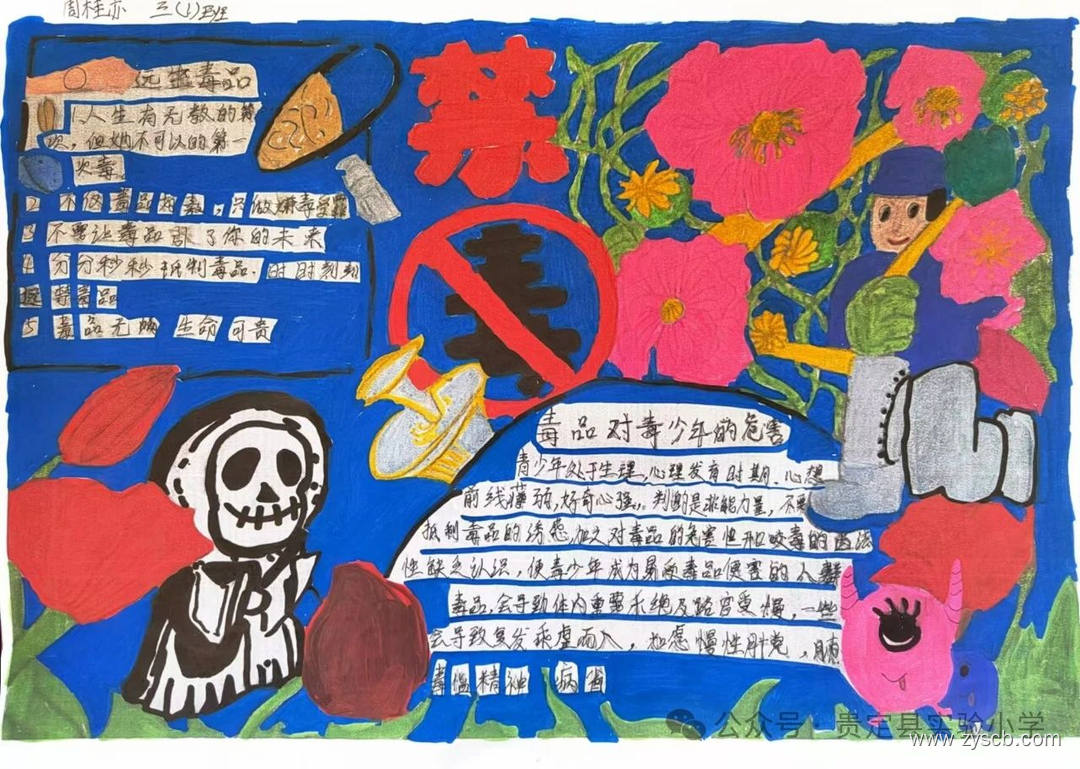 周桂亦 三(1)班
远离毒品
1人生有无数的第
次,但她不可以的第一
次毒。
2 不做毒品,只做嫌毒
3 不要让毒品耶了你的未来
4 分分秒秒抵制毒品.时时刻刻
远 毒品
5 毒品无 生命可贵
禁
毒
毒品对青少年的危害
青少年处于生理,心理发育时期、心想
前线薄弱,好奇心强,判的是非能力量,不
抵制毒品的诱惑,加之对毒品的危害性和吸毒的
性缺乏认识,使青少年成为易受毒品侵害的人群
毒品.会导致体内重要 受慢,一些
会导致复发乘虚而入, 慢性肝炎,
精神 病
公众号·贵定县实验小学
www.zyscb.com